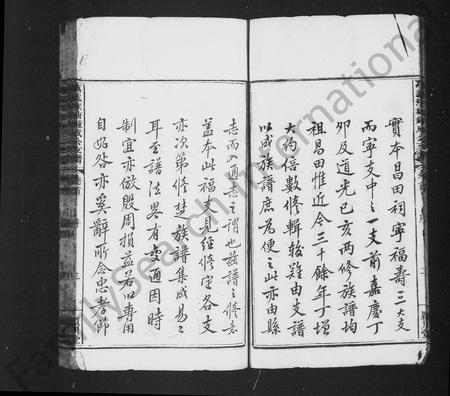 實本昌田祠寧福壽三大支
而寧支中之一支前嘉慶丁
卯及道光己亥兩修族譜均
祖昌田惟近今三十餘年丁增
大約倍數修輯較難由支譜
以成族譜庶為便之此亦由縣
志而入通志之謂也族譜之修意
蓋本此福支先經修守各支
亦次第修楚族譜集成易之
耳至譜法畧有變通因時
制宜亦倣殷周損益若以專用
自始咎亦奚辭所念忠孝節
FamilySearch International